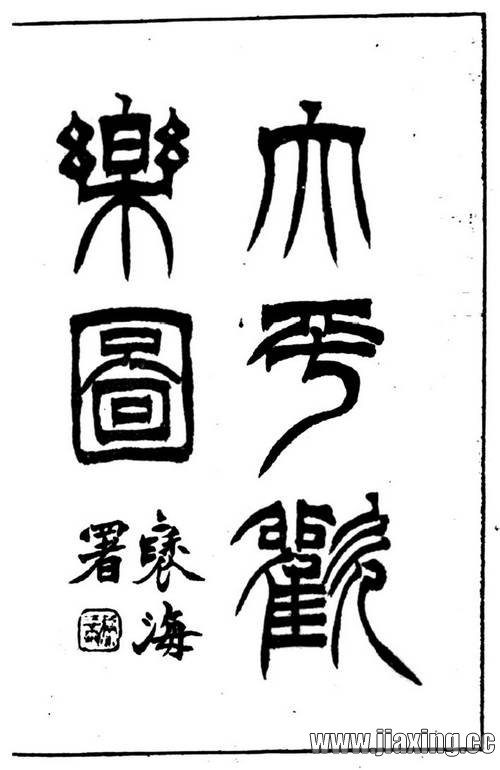 大平歡
樂圖
褎海
署
www.jiaxing.cc